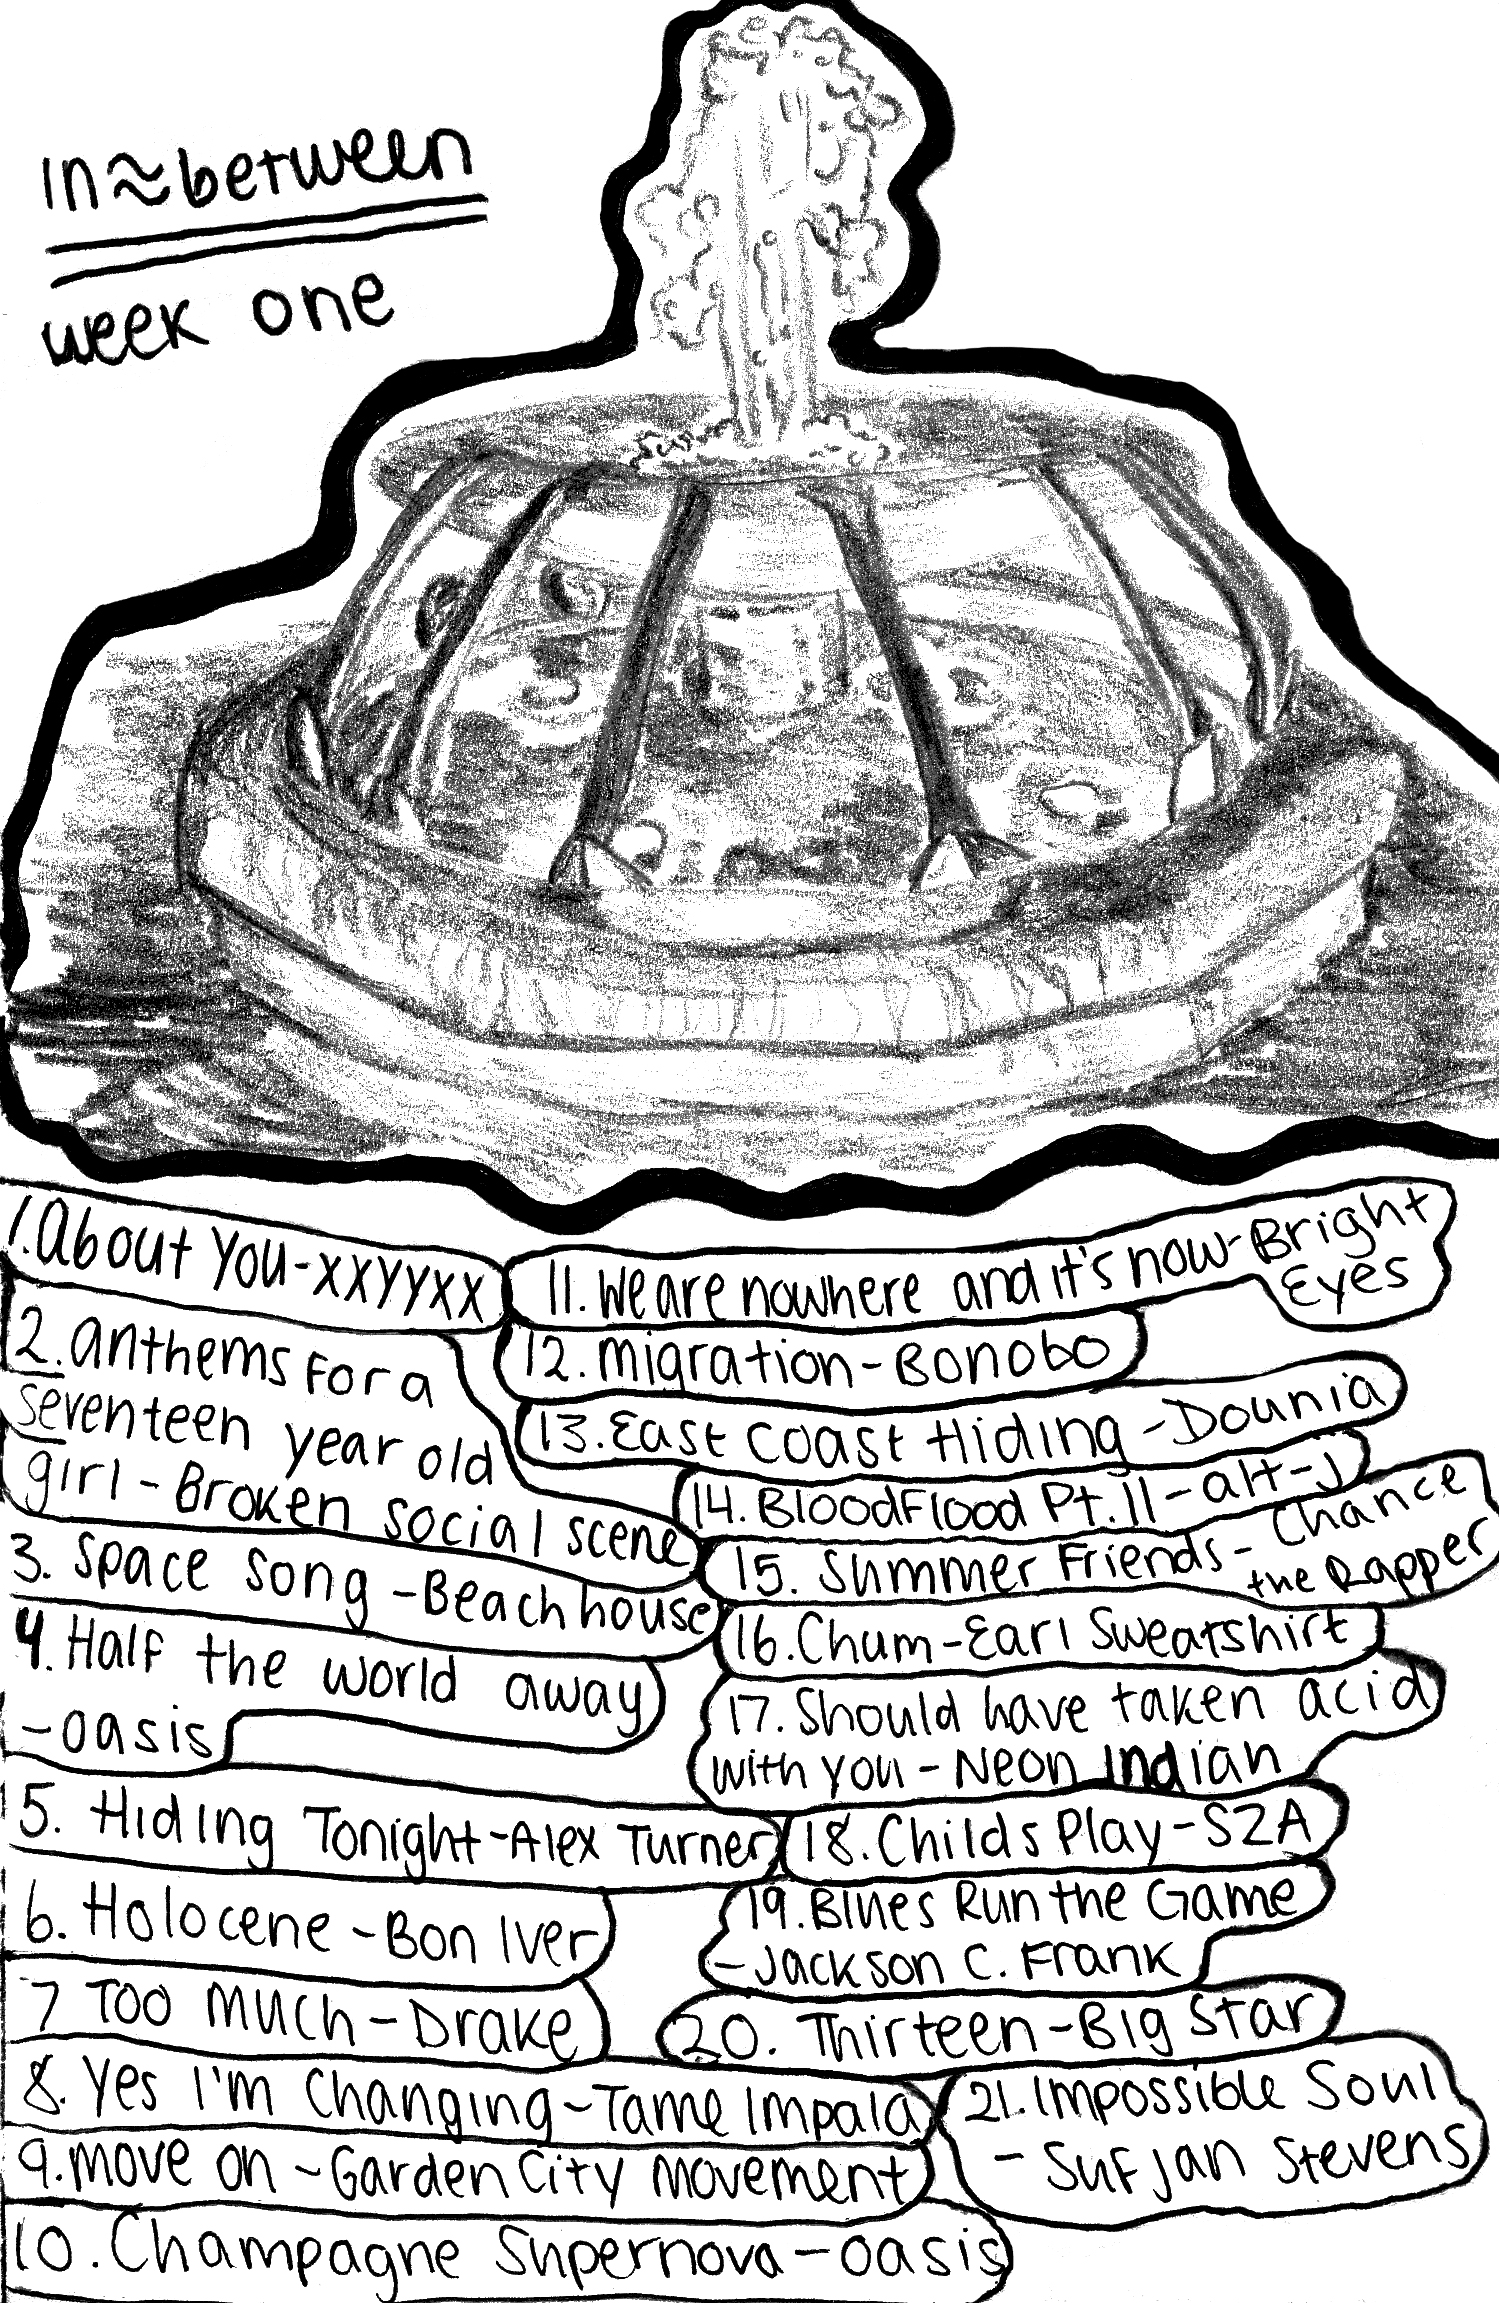 In≈between
week one
1. About You-xxyyxx
2. anthems for a
seventeen year old
girl - Broken social scene
3. space song - Beach house
4. Half the world away
- oasis
5. Hiding Tonight-Alex Turner
6. Holocene - Bon Iver
7 Too Much - Drake
8. Yes I'm Changing - Tame Impala
9. move on - Garden City Movement
10. Champagne Supernova - oasis
11. We are nowhere and it's now - Bright
Eyes
12. Migration - Bonobo
13. East Coast Hiding - Dounia
14. BloodFlood Pt. II - alt-j
15. Summer Friends - Chance
the Rapper
16. Chum - Earl Sweatshirt
17. Should have taken acid
with you - Neon Indian
18. Childs Play - SZA
19. Blues Run the Game
- Jackson C. Frank
20. Thirteen - Big Star
21. Impossible Soul
- Sufjan Stevens